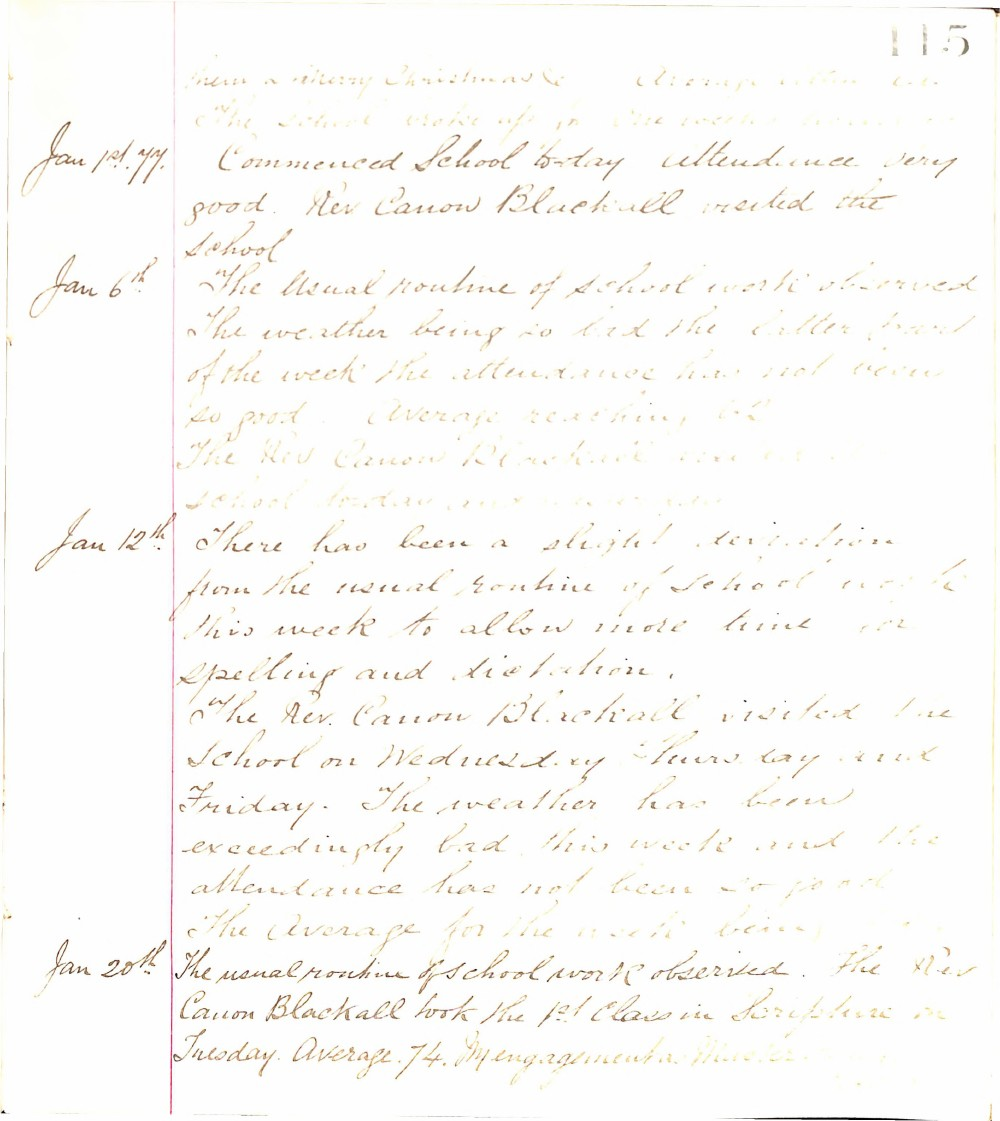 115
them a Merry Christmas &c Average
The school broke up for one week's
Jan 1st. 77. Commenced School to-day attendance very
good. Rev Canon Blackall visited the
school
Jan 6th The Usual routine of school work observed
The weather being so bad the latter part
of the week the attendance has not been
so good. Average reaching 62
The Rev Canon Blackall
school to-day and
Jan 12th. There has been a slight deviation
from the usual routine of school work
this week to allow more time for
spelling and dictation.
The Rev. Canon Blackall visited the
School on Wednesday Thursday and
Friday. The weather has been
exceedingly bad this week and the
attendance has not been so good
The Average for the week being
Jan 20th The usual routine of school work observed. The Rev
Canon Blackall took the 1st Class in Scripture on
Tuesday. Average. 74. My engagement as Master